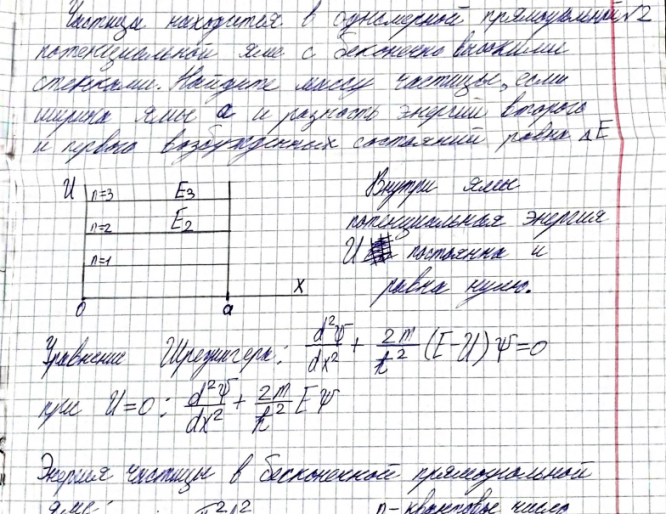 Частица находится в одномерной прямоугольной √2
потенциальной яме с бесконечно высокими
стенками. Найдите массу частицы, если
ширина ямы a и разность энергий второго
и первого возбужденных состояний равна ΔE
U n=3 E3
n=2 E2
n=1
0 a x
Внутри ямы
потенциальная энергия
U постоянна и
равна нулю.
Уравнение Шредингера: d²Ψ/dx² + 2m/ħ² (E-U) Ψ=0
при U=0: d²Ψ/dx² + 2m/ħ² E Ψ
Энергия частицы в бесконечной прямоугольной
яме:
n - квантовое число